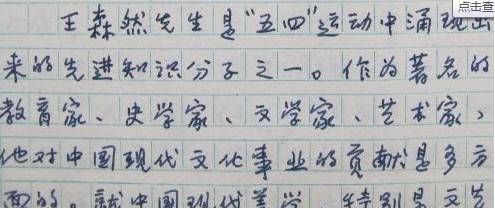 点击查
王森然先生是“五四”运动中涌现出
来的先进知识分子之一。作为著名的
教育家、史学家、文学家、艺术家，
他对中国现代文化事业的贡献是多方
面的。就中国现代美学、特别是文艺